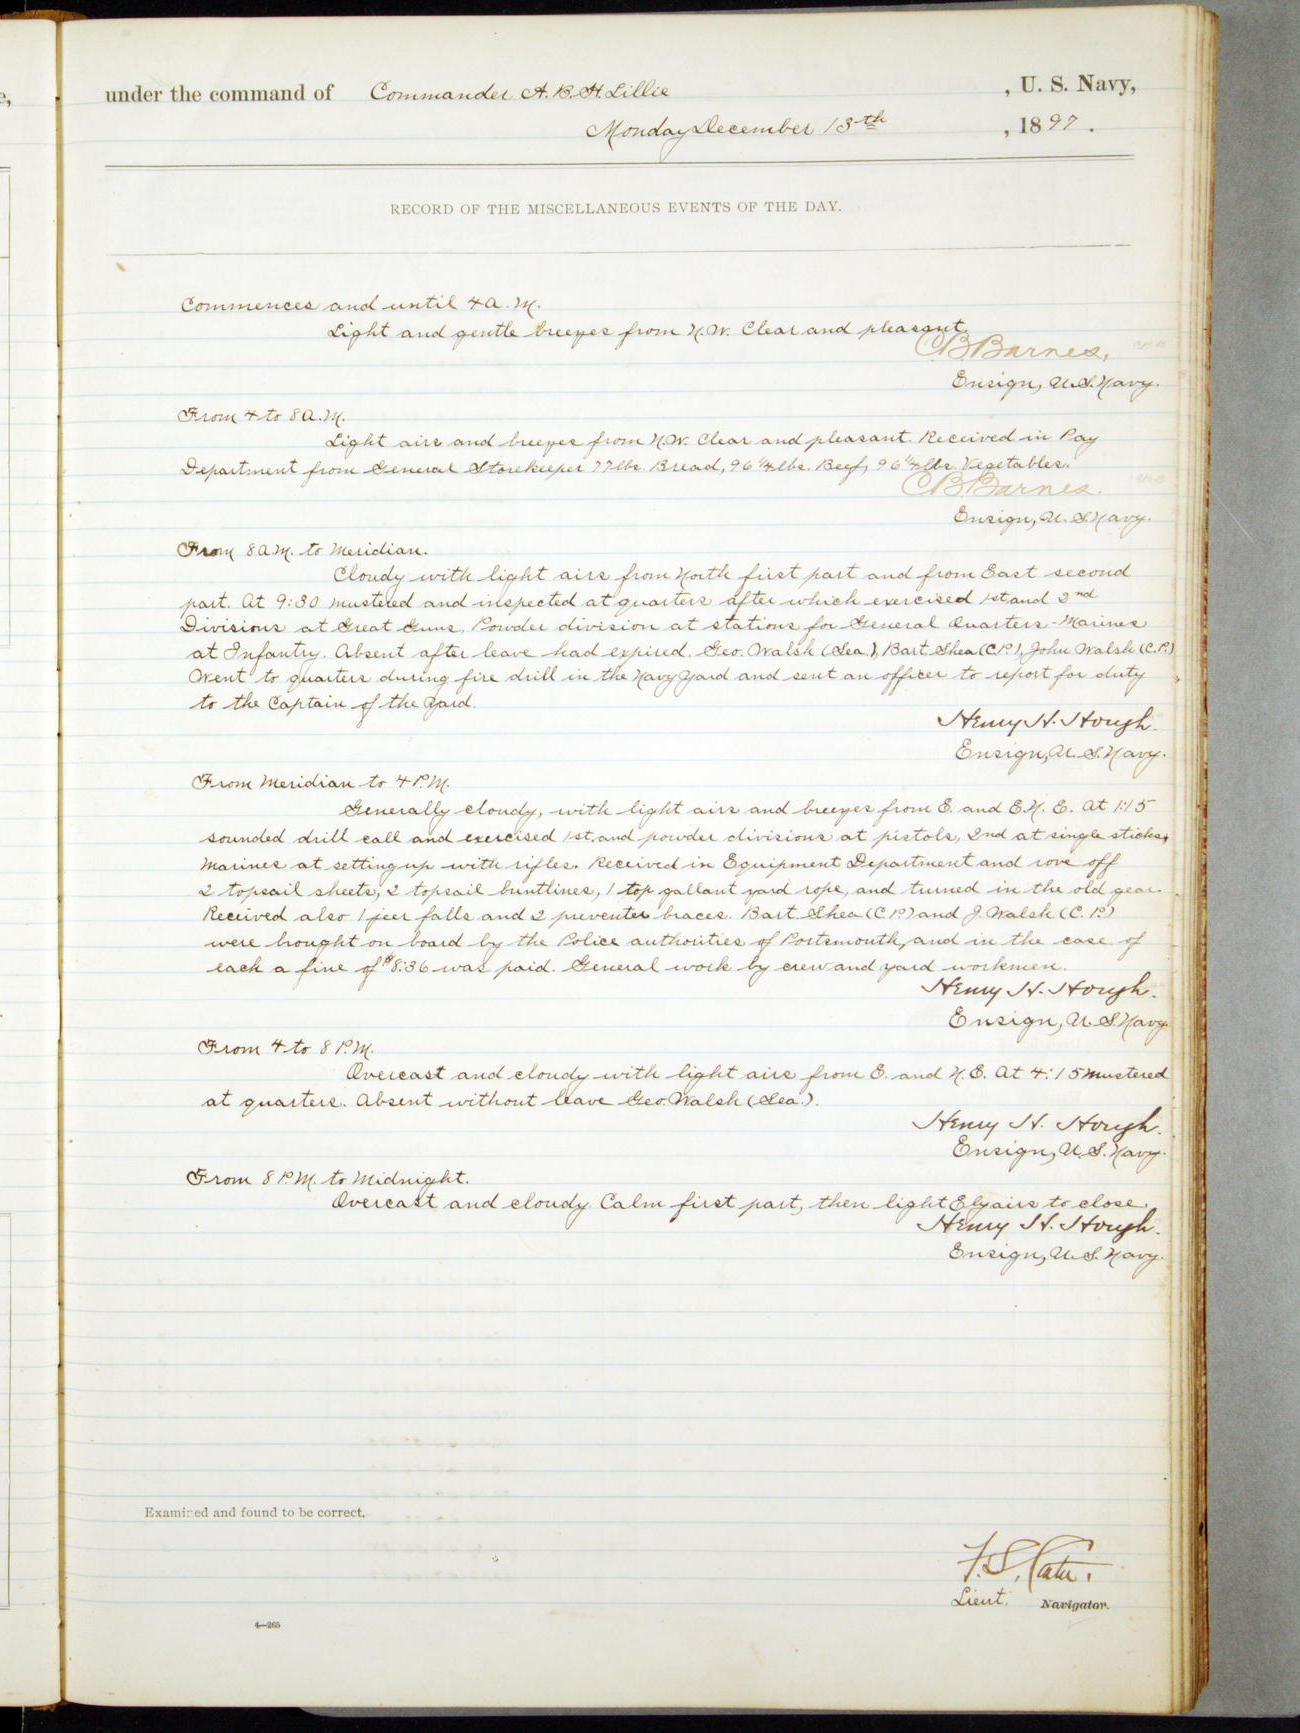 e,
under the command of Commander A. B. H. Lillie , U. S. Navy,
Monday December 13th , 1897.
RECORD OF THE MISCELLANEOUS EVENTS OF THE DAY.
Commences and until 4 a.m.
Light and gentle breezes from N.W. Clear and pleasant.
C B Barnes,
Ensign, U.S. Navy.
From 4 to 8 A.M.
Light airs and breezes from N.W. Clear and pleasant. Received in Pay
Department from General Storekeeper 77 lbs. Bread, 96 1/4 lbs. Beef, 96 1/4 lbs. Vegetables.
C B Barnes.
Ensign, U. S. Navy.
From 8 A.M. to Meridian.
Cloudy with light airs from North first part and from East second
part. At 9:30 mustered and inspected at quarters after which exercised 1st and 2nd
Divisions at Great Guns, Powder division at stations for General Quarters - Marines
at Infantry. Absent after leave had expired, Geo. Walsh (Sea.), Bart. Shea (C.P.), John Walsh (C.P.)
Went to quarters during fire drill in the Navy Yard and sent an officer to report for duty
to the Captain of the Yard.
Henry H. Hough.
Ensign, U. S. Navy.
From Meridian to 4 P.M.
Generally cloudy, with light airs and breezes from E. and E.N.E. At 1:15
sounded drill call and exercised 1st, and powder divisions at pistols, 2nd at single sticks,
Marines at setting up with rifles. Received in Equipment Department and rove off
2 topsail sheets, 2 topsail buntlines, 1 top gallant yard rope, and turned in the old gear.
Received also 1 jeer falls and 2 preventer braces. Bart. Shea (C.P.) and J. Walsh (C.P.)
were brought on board by the Police authorities of Portsmouth, and in the case of
each a fine of $8:36 was paid. General work by crew and yard workmen.
Henry H. Hough.
Ensign, U. S. Navy.
From 4 to 8 P.M.
Overcast and cloudy with light airs from E. and N.E. At 4:15 mustered
at quarters. Absent without leave Geo. Walsh (Sea.).
Henry H. Hough.
Ensign, U. S. Navy.
From 8 P.M. to Midnight.
Overcast and cloudy. Calm first part, then light Ely airs to close.
Henry H. Hough.
Ensign, U. S. Navy.
Examined and found to be correct.
F. S.
Lieut. Navigator.
4—265